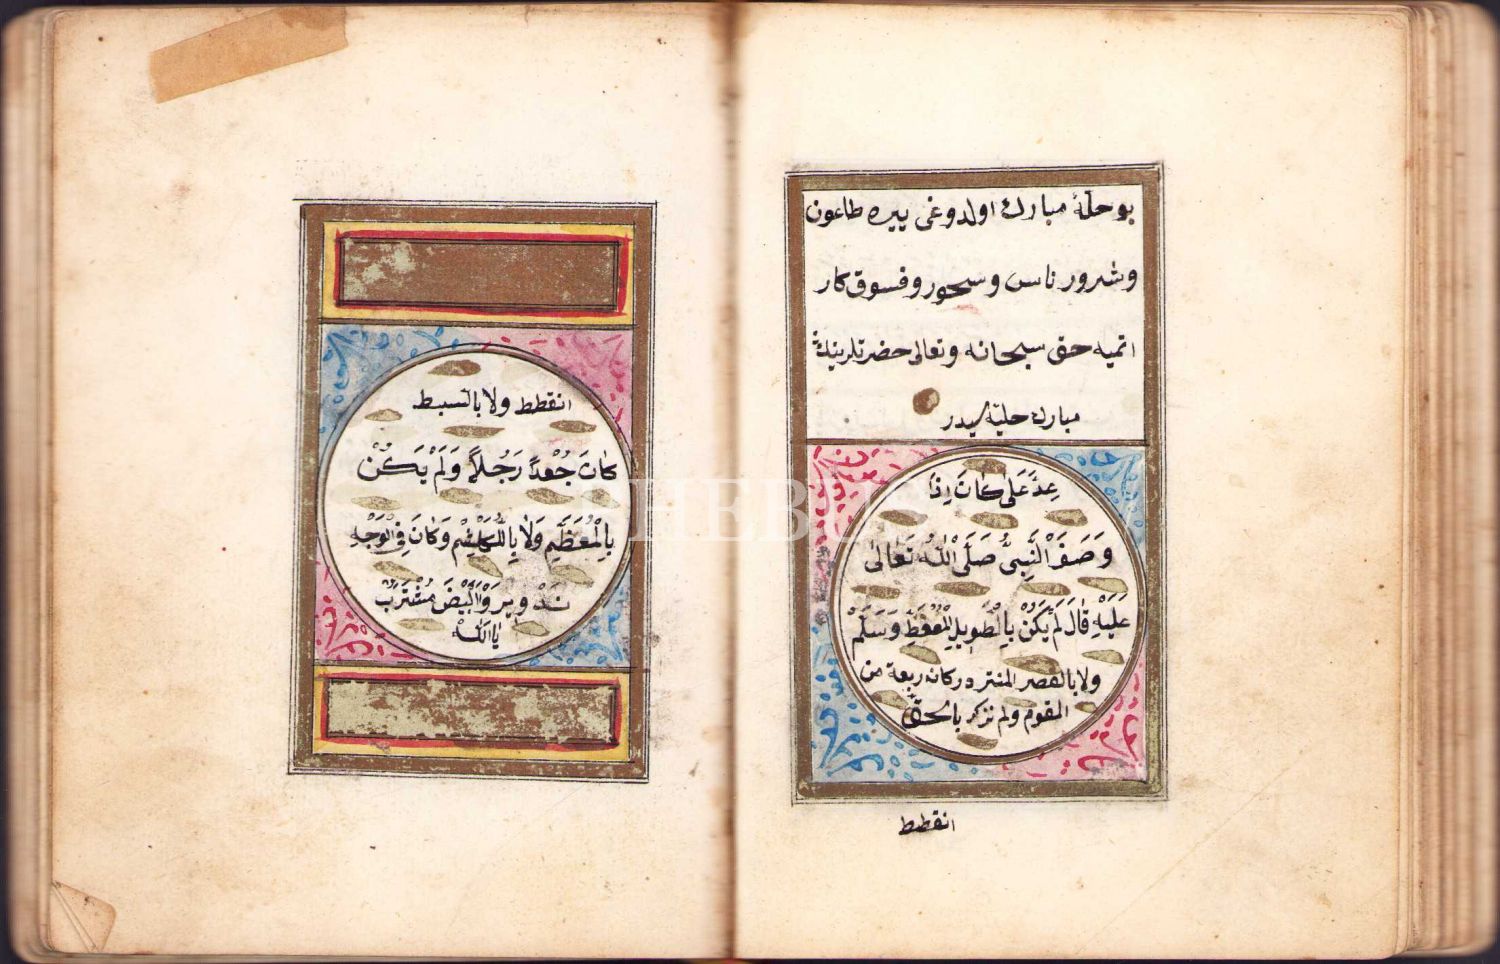 بو حليۀ مبارك اولدوغى ييره طاعون
وشرور ناس وسحور وفسوق كار
اتميه حق سبحانه وتعالى حضرتلرينك
مبارك حليۀ سيدر
عِدَّ عَلى كَانَ اِذَا
وَصَفَ الْنَبِىُّ صَلَّى اللّٰهُ تَعَالٰى
عَلَيْهِ قَالَ لَمْ يَكُنْ بِالْطَوِيلِ الْمُمَغَّطِ وَسَلَّمْ
ولا بالقصر المتردد كان ربعة من
القوم ولم
انقطط
انقطط ولا بالسبط
كَانَ جُعْدًا رَجُلاً وَلَمْ يَكُنْ
بِالْمُعَظَّمِ وَلَا بِالْمُكَلْثَمْ وَكَانَ فِى الْوَجْهِ
تَدْوير اَبْيَضَ مُشْرَبٌ
SHEBU